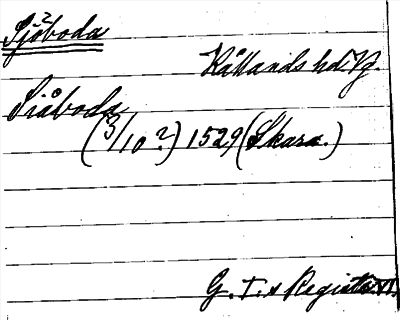 Sjöboda
Kållands hd Vg.
Siåboda
(3/10?) 1529 (Skara.)
G. I:s Registr. VI.